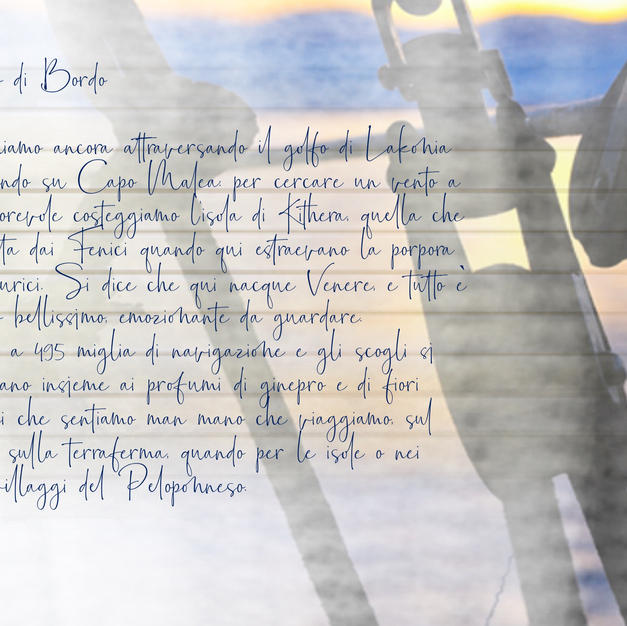 di Bordo
iamo ancora attraversando il golfo di Lakonia
ndo su Capo Malea: per cercare un vento a
orevole costeggiamo l'isola di Kithera, quella che
ta dai Fenici quando qui estraevano la porpora
urici. Si dice che qui nacque Venere, e tutto è
bellissimo, emozionante da guardare.
a 495 miglia di navigazione e gli scogli si
ano insieme ai profumi di ginepro e di fiori
i che sentiamo man mano che viaggiamo, sul
sulla terraferma, quando per le isole o nei
villaggi del Peloponneso.